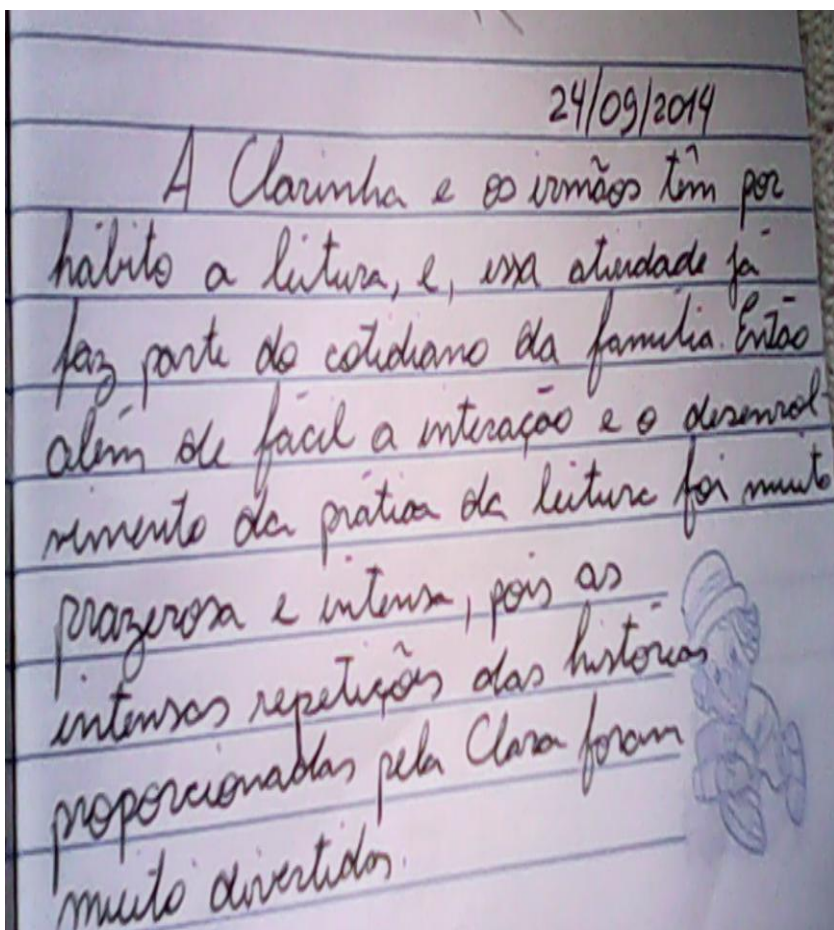 24/09/2014
A Clarinha e os irmãos têm por
hábito a leitura, e, essa atividade já
faz parte do cotidiano da família. Então
além de fácil a interação e o desenvol-
vimento da prática da leitura foi muito
prazerosa e intensa, pois as
intensas repetições das histórias
proporcionadas pela Clara foram
muito divertidas.